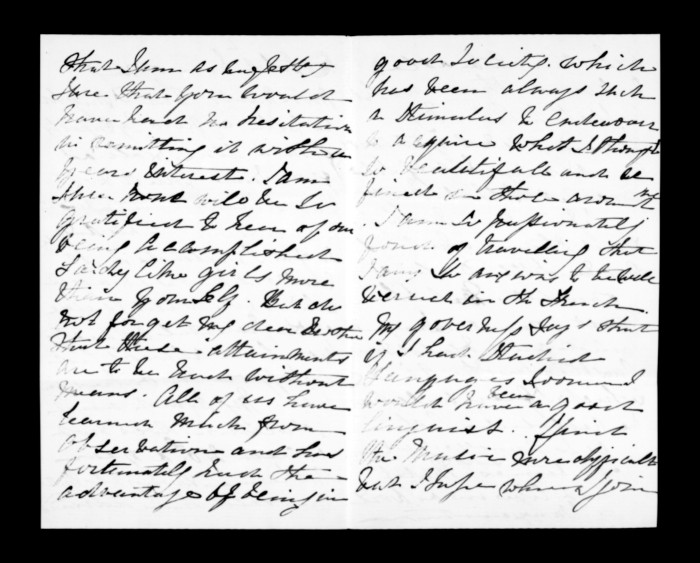 that I am as anxious
sure that you would
have had no hesitation
in committing it without
your interest. I am
sure none will be so
gratified to hear of our
being accomplished
Lady like girls more
than yourself. But do
not forget my dear Brother
that these attainments
are to be had without
means. All of us have
learnt much from
observation and has
fortunately had the
advantage of being in
good Society. which
has been always such
a Stimulus to endeavour
to acquire what I thought
so beautiful and re
fined in those around me
. I am so passionately
fond of travelling that
I am so anxious to be well
versed in the French.
My governess says that
if I had Studied
Languages I
would have been a good
linguist. I find
the Music more difficult
but I hope when I join